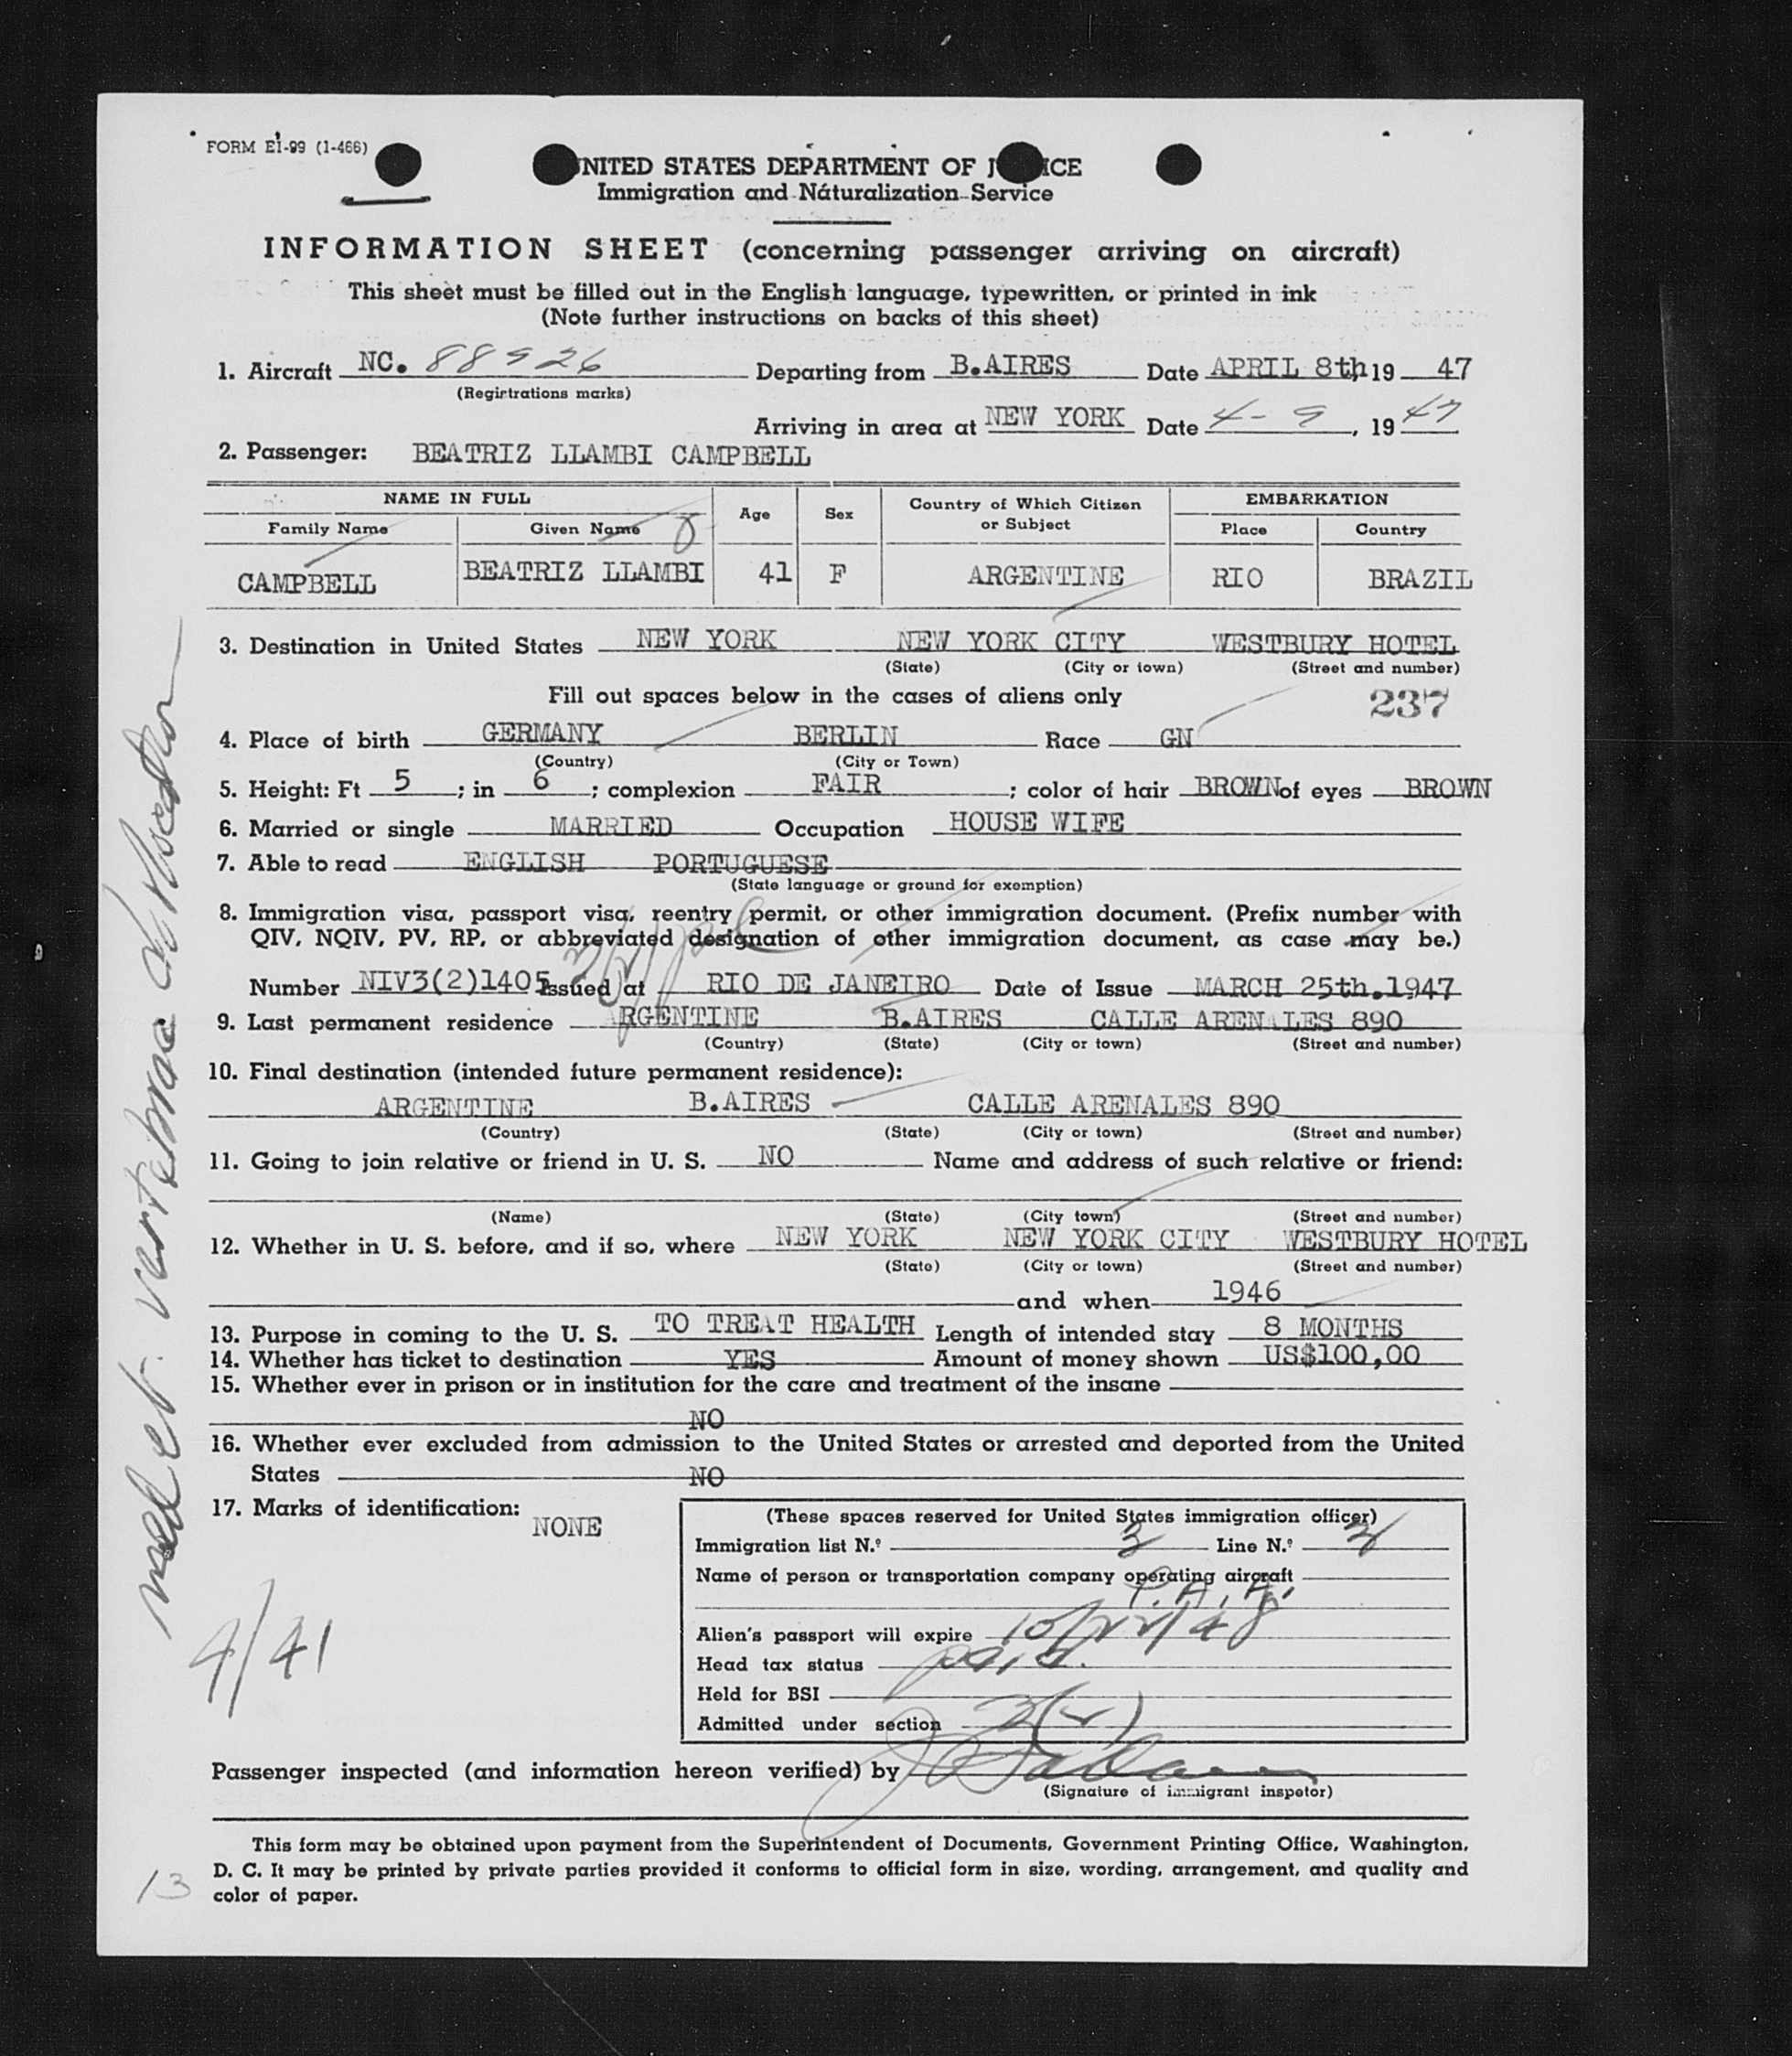 FORM EI-99 (1-466)
UNITED STATES DEPARTMENT OF JUSTICE
Immigration and Naturalization Service
INFORMATION SHEET (concerning passenger arriving on aircraft)
This sheet must be filled out in the English language, typewritten, or printed in ink
(Note further instructions on backs of this sheet)
1. Aircraft NC. 88926 Departing from B.AIRES Date APRIL 8th, 19 47
(Registrations marks)
Arriving in area at NEW YORK Date 4-9, 19 47
2. Passenger: BEATRIZ LLAMBI CAMPBELL
NAME IN FULL Age Sex Country of Which Citizen or Subject EMBARKATION
Family Name Given Name Place Country
CAMPBELL BEATRIZ LLAMBI 41 F ARGENTINE RIO BRAZIL
3. Destination in United States NEW YORK NEW YORK CITY WESTBURY HOTEL
(State) (City or town) (Street and number)
Fill out spaces below in the cases of aliens only 237
4. Place of birth GERMANY BERLIN Race GN
(Country) (City or Town)
5. Height: Ft 5 ; in 6 ; complexion FAIR ; color of hair BROWN of eyes BROWN
6. Married or single MARRIED Occupation HOUSE WIFE
7. Able to read ENGLISH PORTUGUESE
(State language or ground for exemption)
8. Immigration visa, passport visa, reentry permit, or other immigration document. (Prefix number with
QIV, NQIV, PV, RP, or abbreviated designation of other immigration document, as case may be.)
Number NIV3(2)1405 Issued at RIO DE JANEIRO Date of Issue MARCH 25th.1947
9. Last permanent residence ARGENTINE B.AIRES CALLE ARENALES 890
(Country) (State) (City or town) (Street and number)
10. Final destination (intended future permanent residence):
ARGENTINE B.AIRES CALLE ARENALES 890
(Country) (State) (City or town) (Street and number)
11. Going to join relative or friend in U. S. NO Name and address of such relative or friend:
(Name) (State) (City town) (Street and number)
12. Whether in U. S. before, and if so, where NEW YORK NEW YORK CITY WESTBURY HOTEL
(State) (City or town) (Street and number)
and when 1946
13. Purpose in coming to the U. S. TO TREAT HEALTH Length of intended stay 8 MONTHS
14. Whether has ticket to destination YES Amount of money shown US$100,00
15. Whether ever in prison or in institution for the care and treatment of the insane
NO
16. Whether ever excluded from admission to the United States or arrested and deported from the United
States NO
17. Marks of identification: NONE
(These spaces reserved for United States immigration officer)
Immigration list N.º 3 Line N.º 2
Name of person or transportation company operating aircraft
P.A.A.
Alien's passport will expire 10/22/48
Head tax status paid.
Held for BSI
Admitted under section 3(2)
4/41
Passenger inspected (and information hereon verified) by
(Signature of immigrant inspetor)
This form may be obtained upon payment from the Superintendent of Documents, Government Printing Office, Washington,
D. C. It may be printed by private parties provided it conforms to official form in size, wording, arrangement, and quality and
color of paper.
13